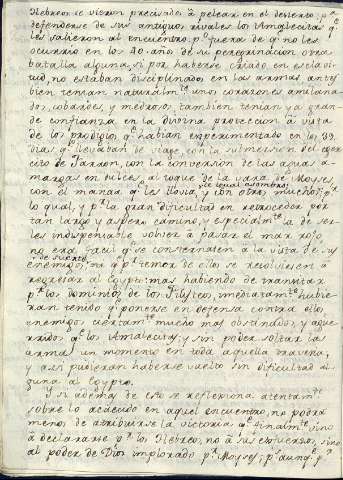 Hebreos se vieron precisados à pelear en el desierto pª
defenderse de sus antiguos rivales los Amalecitas qe
les salieron al encuentro: pº fuera de qe no les
ocurrió en los 40. años de su peregrinacion otra
batalla alguna, si por haberse criado en esclavi-
tud, no estaban disciplinados en las armas, antes
bien tenian naturalmte unos corazones amilana-
dos, cobardes, y medrosos, tambien tenian ya gran-
de confianza en la divina proteccion à vista
de los prodigios qe habian experimentado en los 39.
dias qe llevaban de viage, con la submersion del exer-
cito de Faraon, con la conversion de las aguas a-
margas en dulces al toque de la vara de Moyses,
con el manaa qe les llovia, y con otros muchos
de igual asombro; pr
lo qual, y pr la gran dificultad en retroceder por
tan largo y aspero camino, y especialmte la de ser-
les indispensable volver à pasar el mar roxo
no era facil qe se consternasen à la vista de sus
enemigos,
de suerte
ni à pr temor de ellos se resolviesen à
regresar al Egypto: mas habiendo de transitar
pr los dominios de los Filisteos, mediatamte hubie-
ran tenido qe ponerse en defensa contra ellos,
enemigos ciertamte mucho mas obstinados, y ague-
rridos qe los Amalecitas, y sin poder soltar las
armas un momento en toda aquella travesia,
y asi pudieran haberse vuelto sin dificultad al-
guna al Egypto.
Y si ademas de esto se reflexiona atentamte
sobre lo acaecido en aquel encuentro, no podra
menos de atribuirse la victoria qe finalmte vino
à declararse pr los Hebreos, no à sus esfuerzos, sino
al poder de Dios implorado pr Moyses; ps aunqe pr